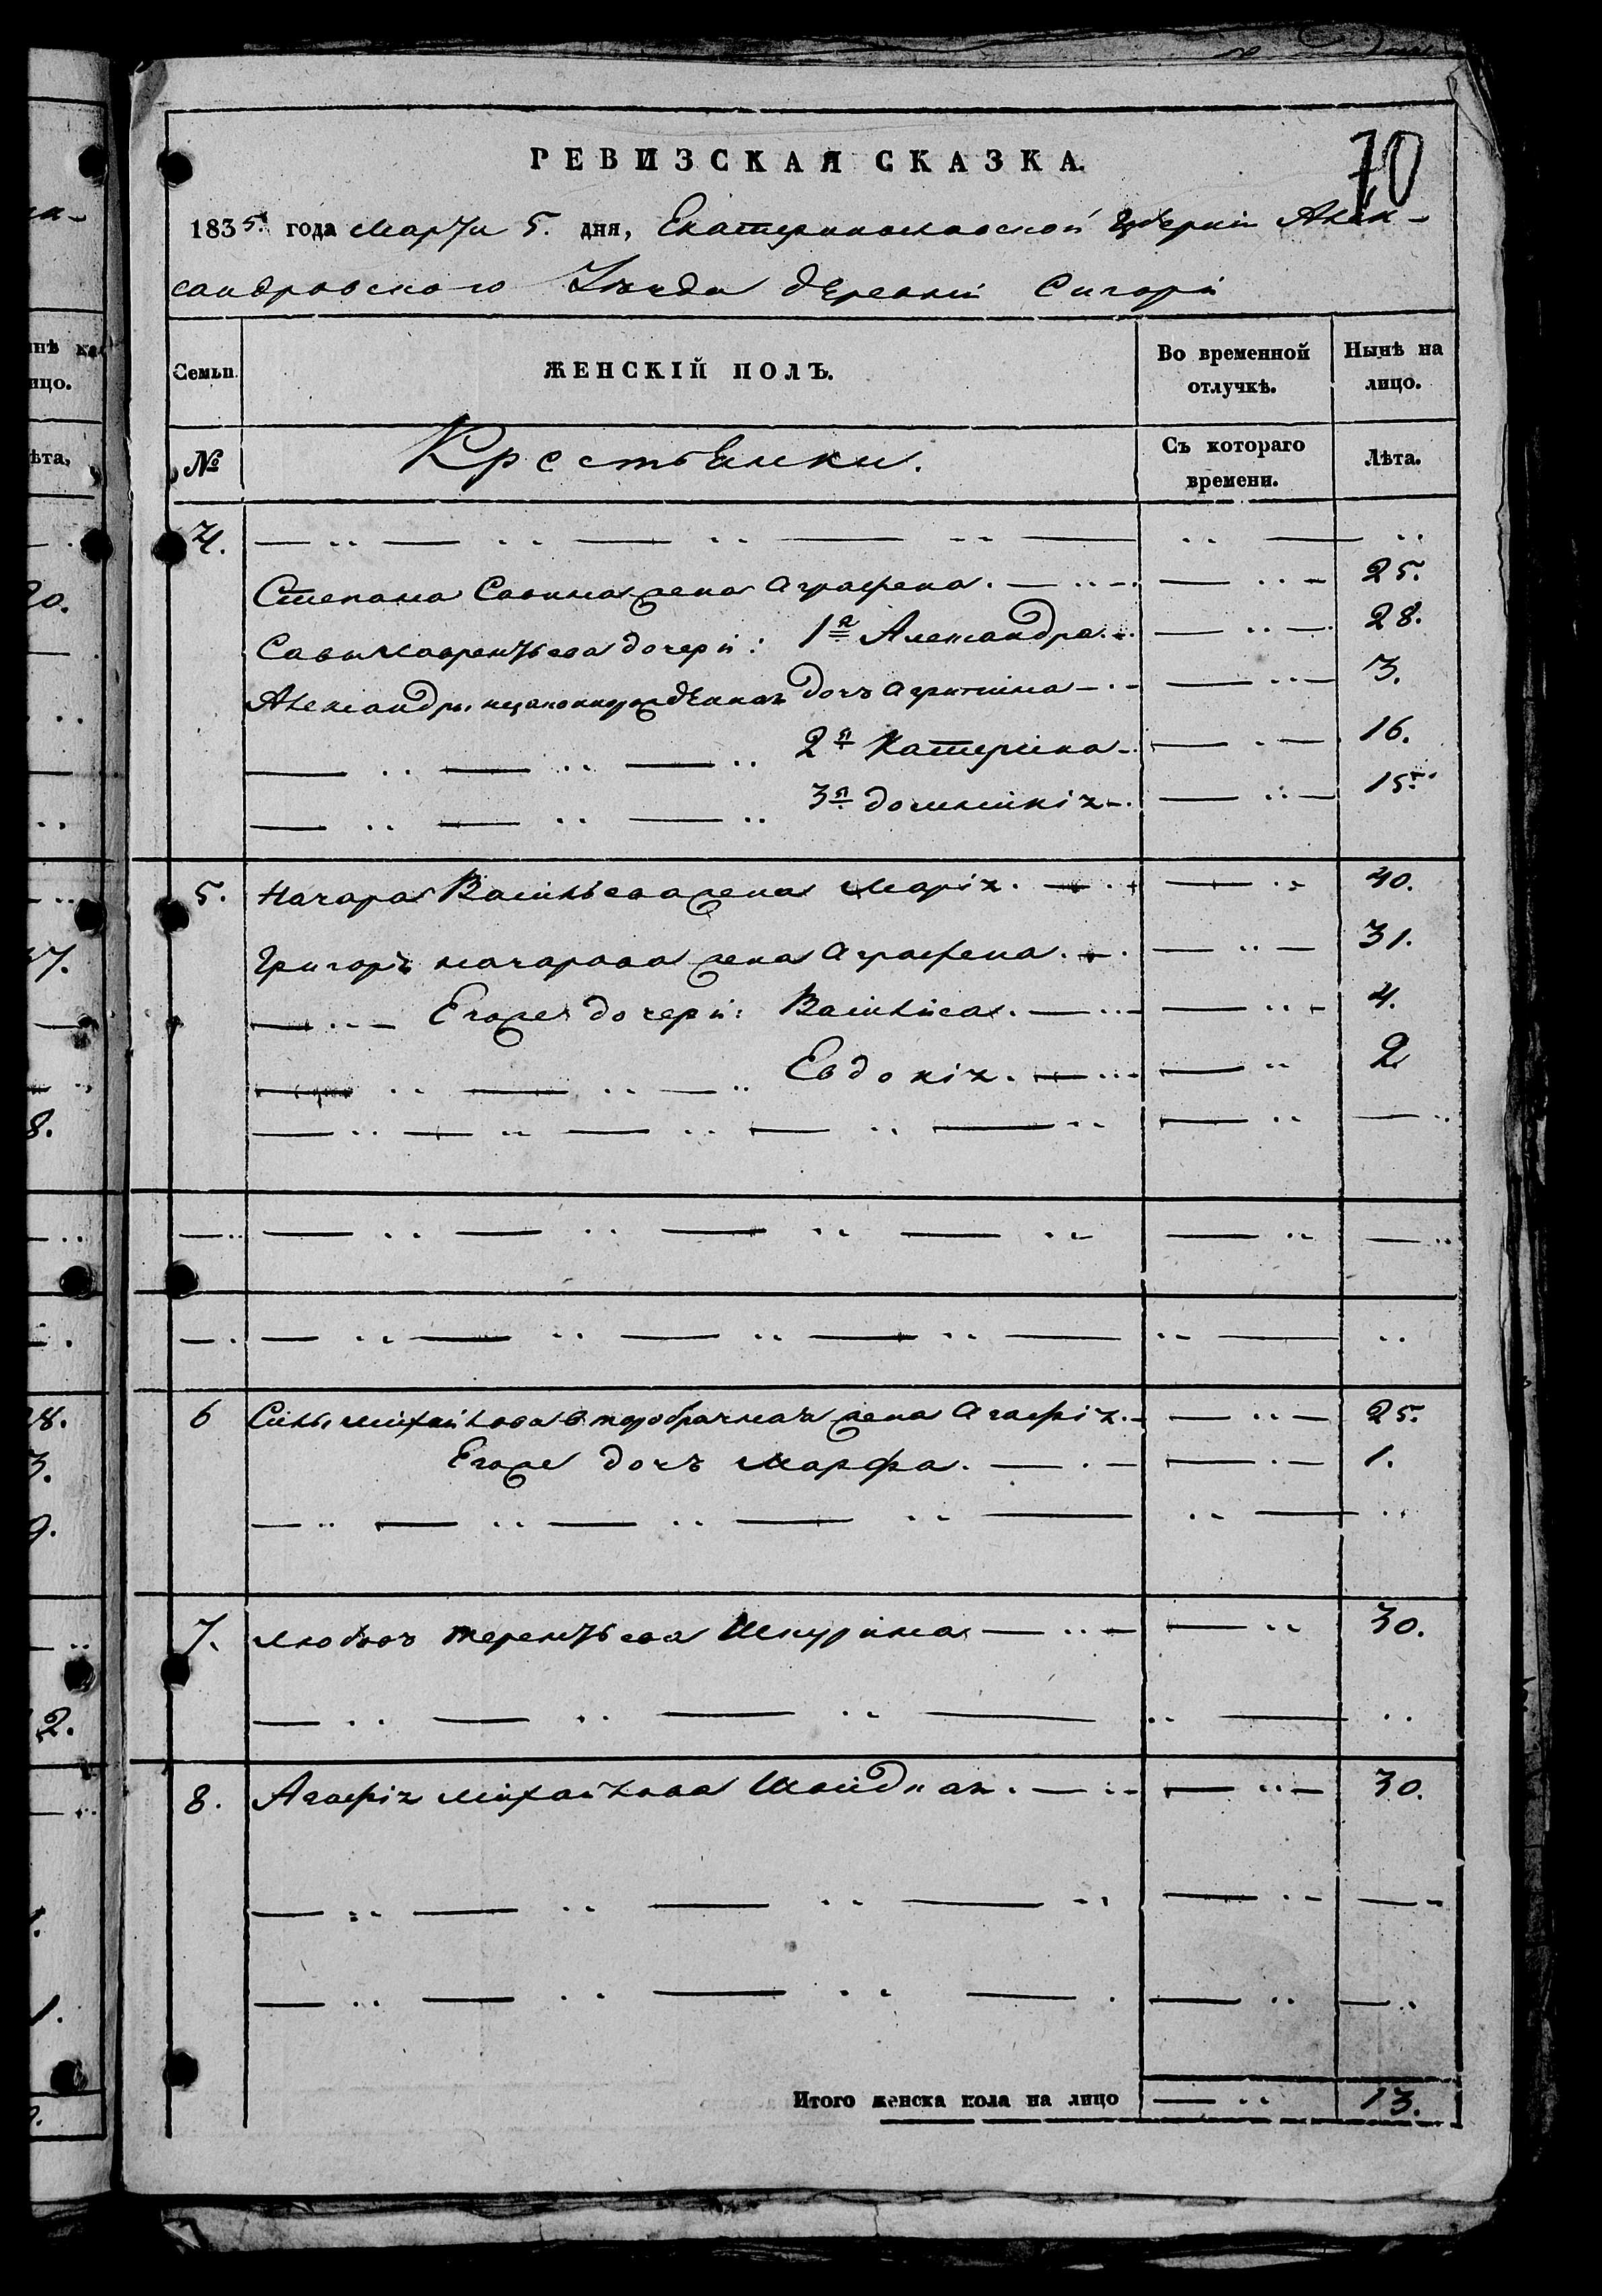 70
РЕВИЗСКАЯ СКАЗКА.
1835. года Марта 5. дня, Екатеринославской Губерніи Алек-
сандровского Уезда деревни
Семьи.
ЖЕНСКІЙ ПОЛЪ.
Во временной отлучкѣ.
Нынѣ на лицо.
№
Крестьянки.
Съ котораго времени.
Лѣта.
4.
Степана Савина жена Аграфена. 25.
Савы Лаврентьева дочери: 1я Александра. 28.
Александры незаконнорожденная дочь 3.
2я Катерина 16.
3я Домникія 15.
5. Назара Васильева жена Марія. 40.
Григорія Назарова жена Аграфена. 31.
Егоже дочери: Василиса. 4.
Евдокія. 2
6 Силы Михайлова второбрачная жена Агафія. 25.
Егоже дочь Марфа. 1.
7. Любовь Терентьева Шкурина 30.
8. Агафія Михайлова 30.
Итого женска пола на лицо 13.